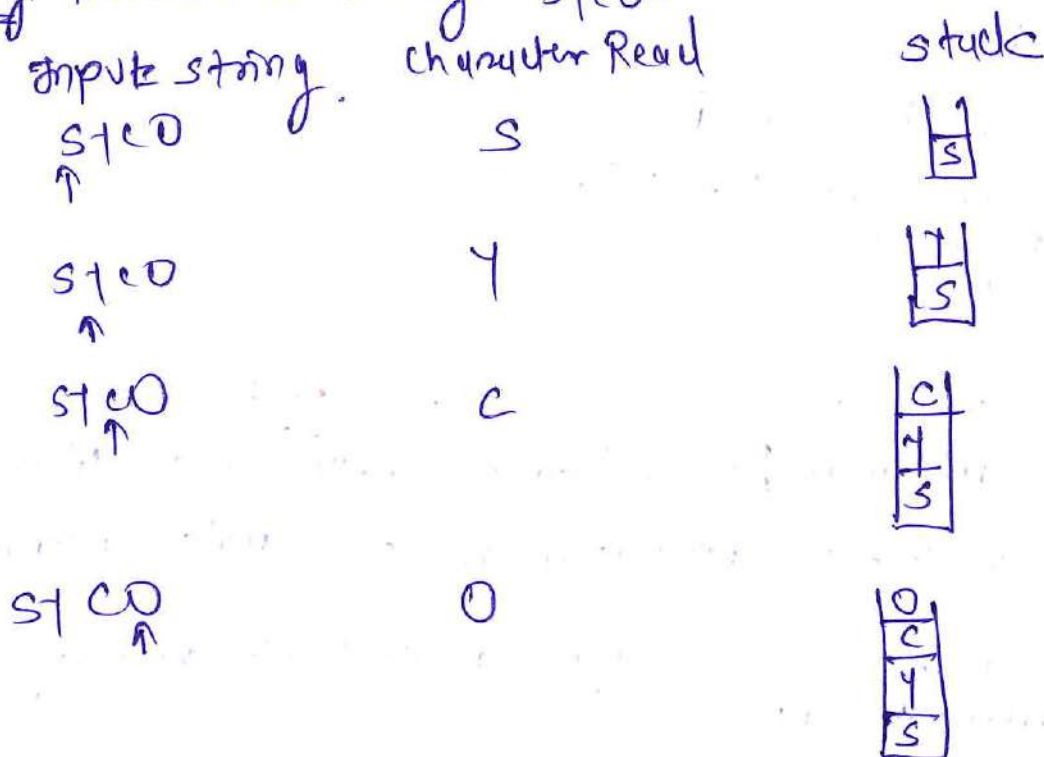 Input string. Character Read stack
SYCO S S
SYCO Y Y
S
SYCO C C
Y
S
SYCO O O
C
Y
S